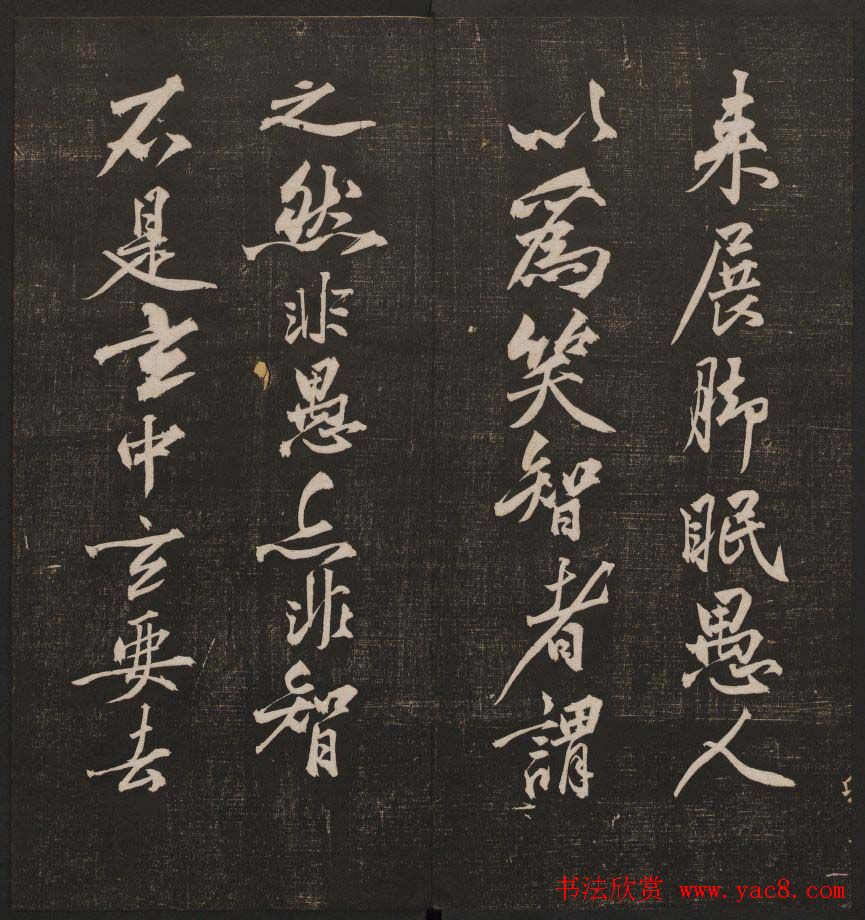 来展脚眠愚人
以為笑智者謂
之然非愚亦非智
不是玄中玄要去
书法欣赏 www.yac8.com